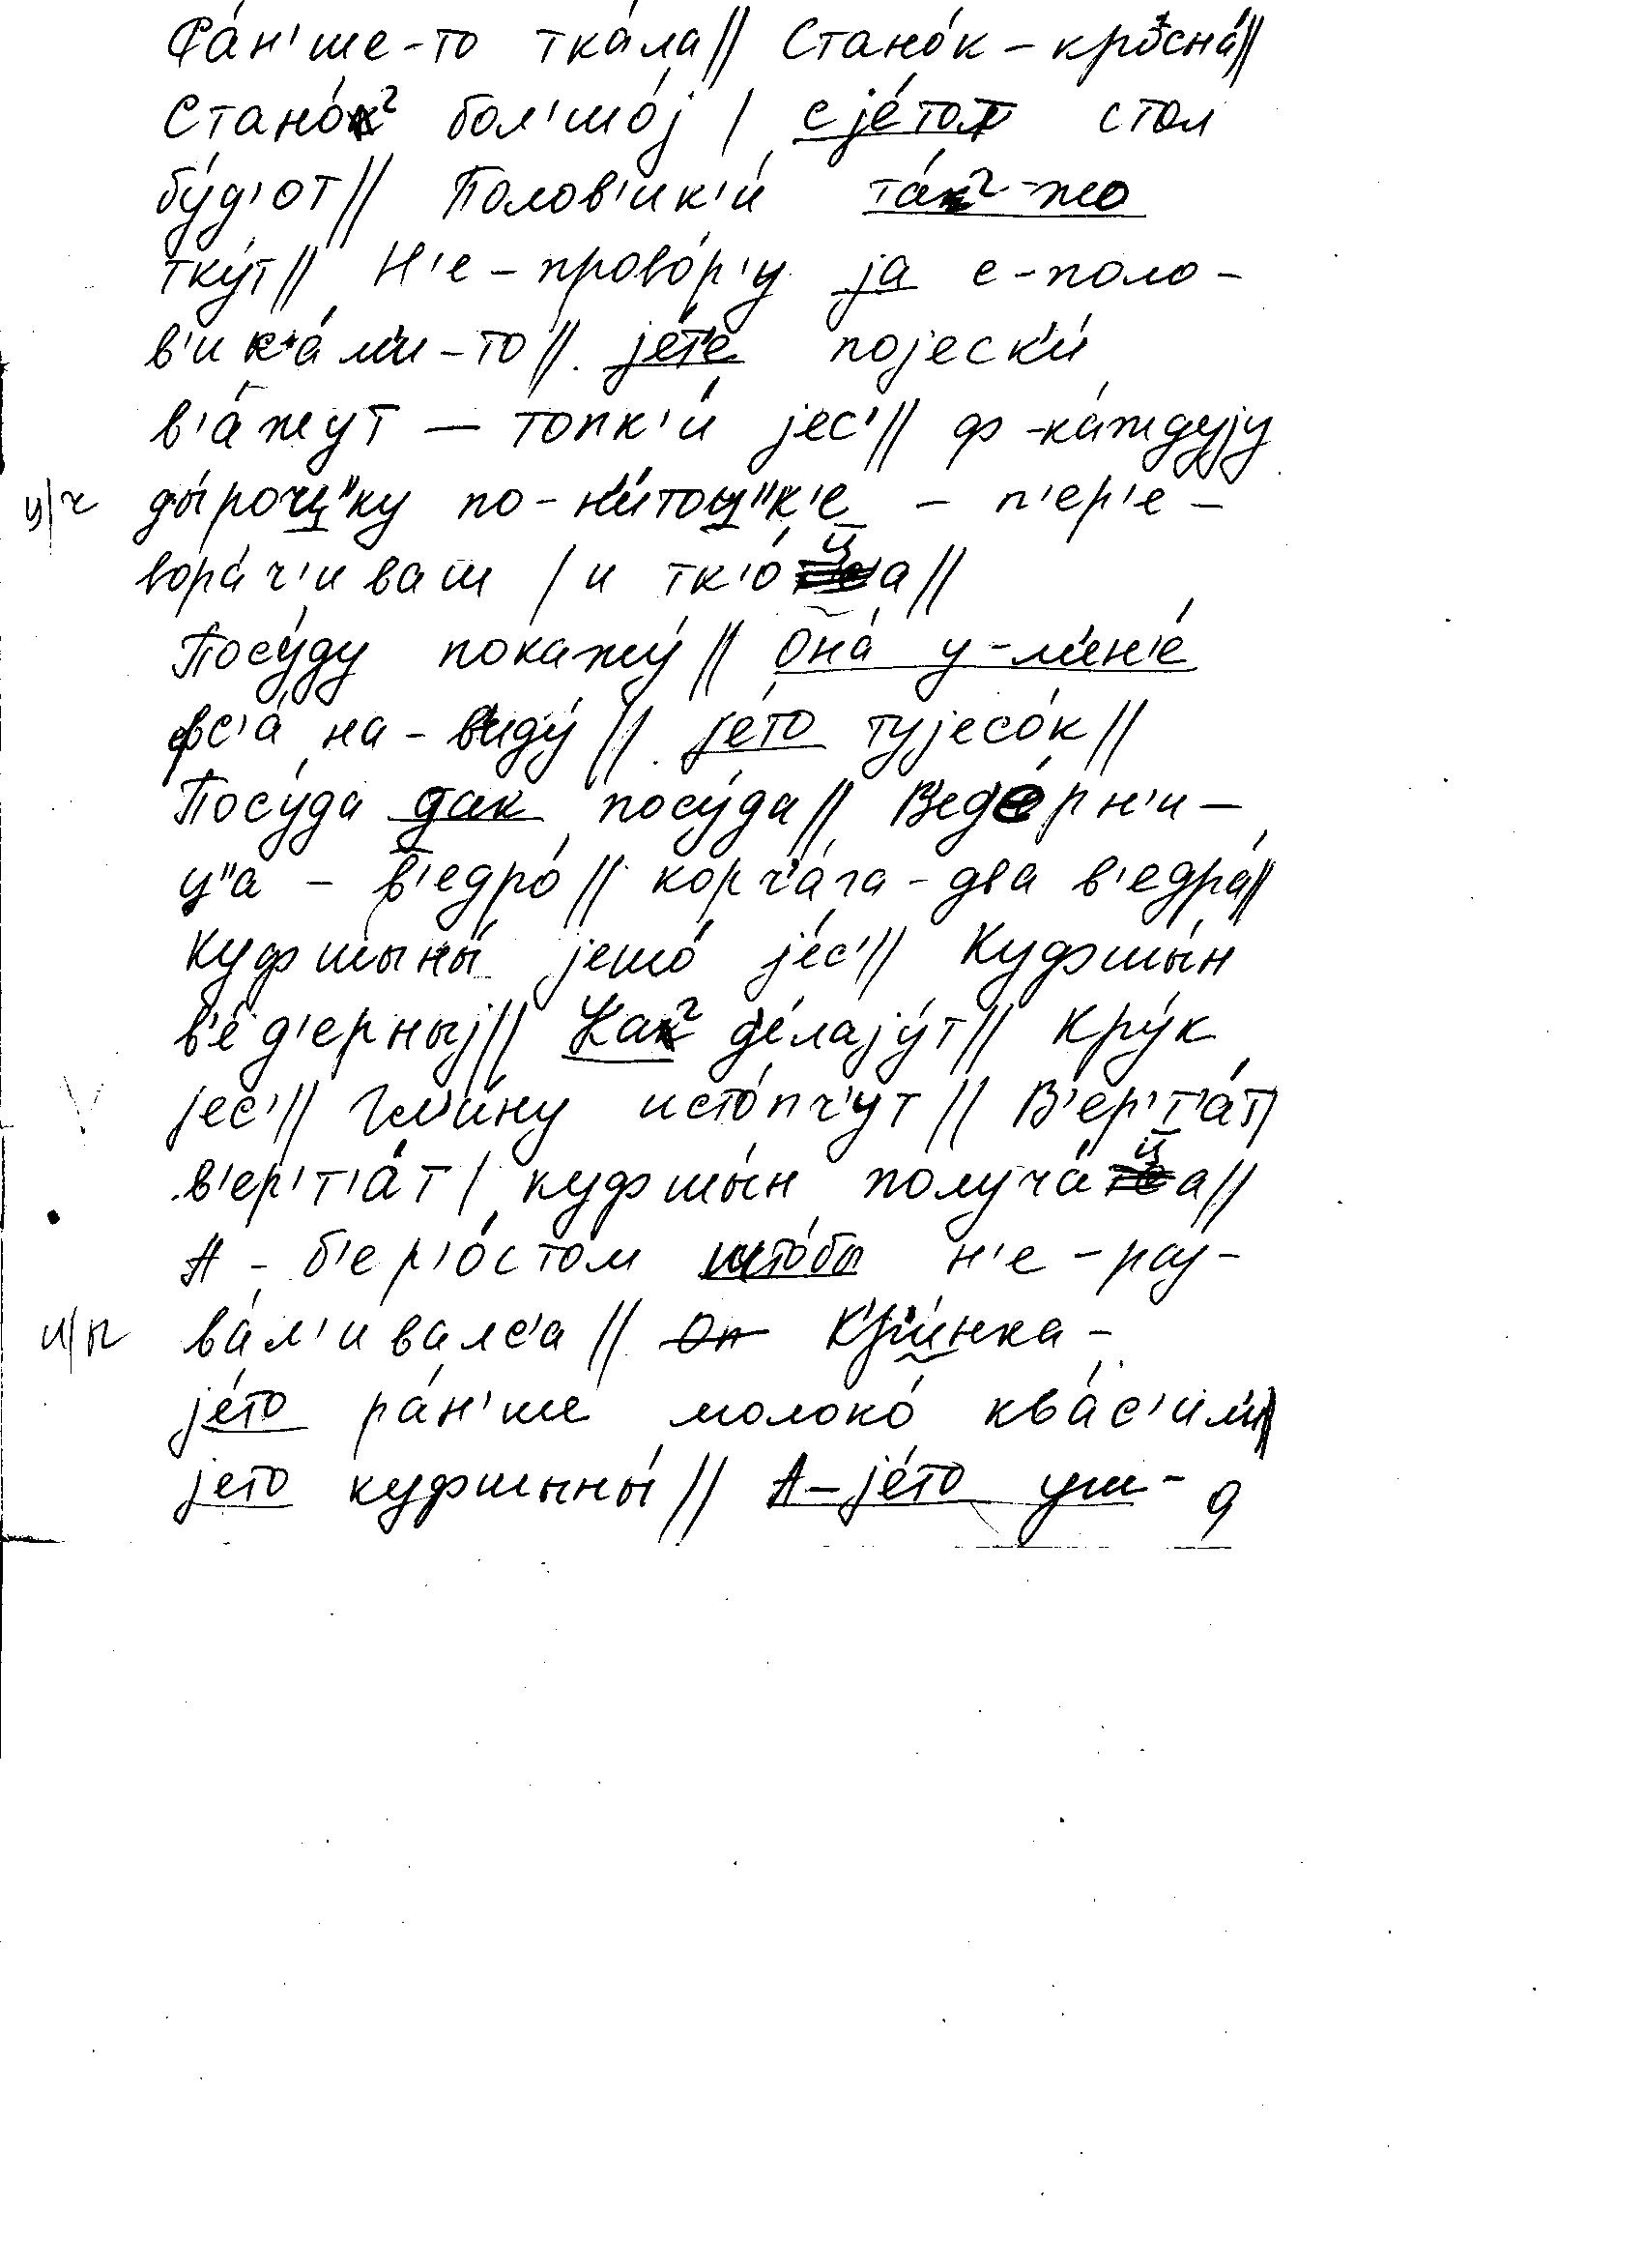 Ра́н'ше-то тка́ла// Стано́к – кро́сна́//
Стано́к² бол'шо́j / с jе́тот стол
бу́д'от// Полов'ик'и́ та́к²-жо
тку́т// Н'е-прово́р'у jа с-поло-
в'ик'а́м'и-то// jе́т'е поjеск'и́
в'а́жут – топк'и́ jес'// ф-ка́ждуjу
ц/ч ды́роч"ку по-н'и́тоц"к'е – п'ер'е-
вора́ч'иваш / и тк'о́ца//
Посу́ду покажу́// Она́ у-м'ен'е́
фс'а́ на-виду́// jе́то туjесо́к//
Посу́да дак посу́да// Ведёрн'и-
ц"а – в'едро́// корч'а́га – два в'едра́//
Куфшыны́ jешо́ jе́с'// Куфшы́н
в'е́д'ерныj// Как² д'е́лаjу́т// Кру́к
jес'// Гл'и́ну исто́пч'ут// В'ер'т'а́т,
в'ер'т'а́т / куфшы́н получа́ца//
А – б'ер'о́стом што́бы н'е-раз-
и/ы ва́л'ивалс'а// Кр'и́нка –
jе́то ра́н'ше молоко́ ква́с'ил'и//
jето куфшыны́// А – jе́то уш- 9